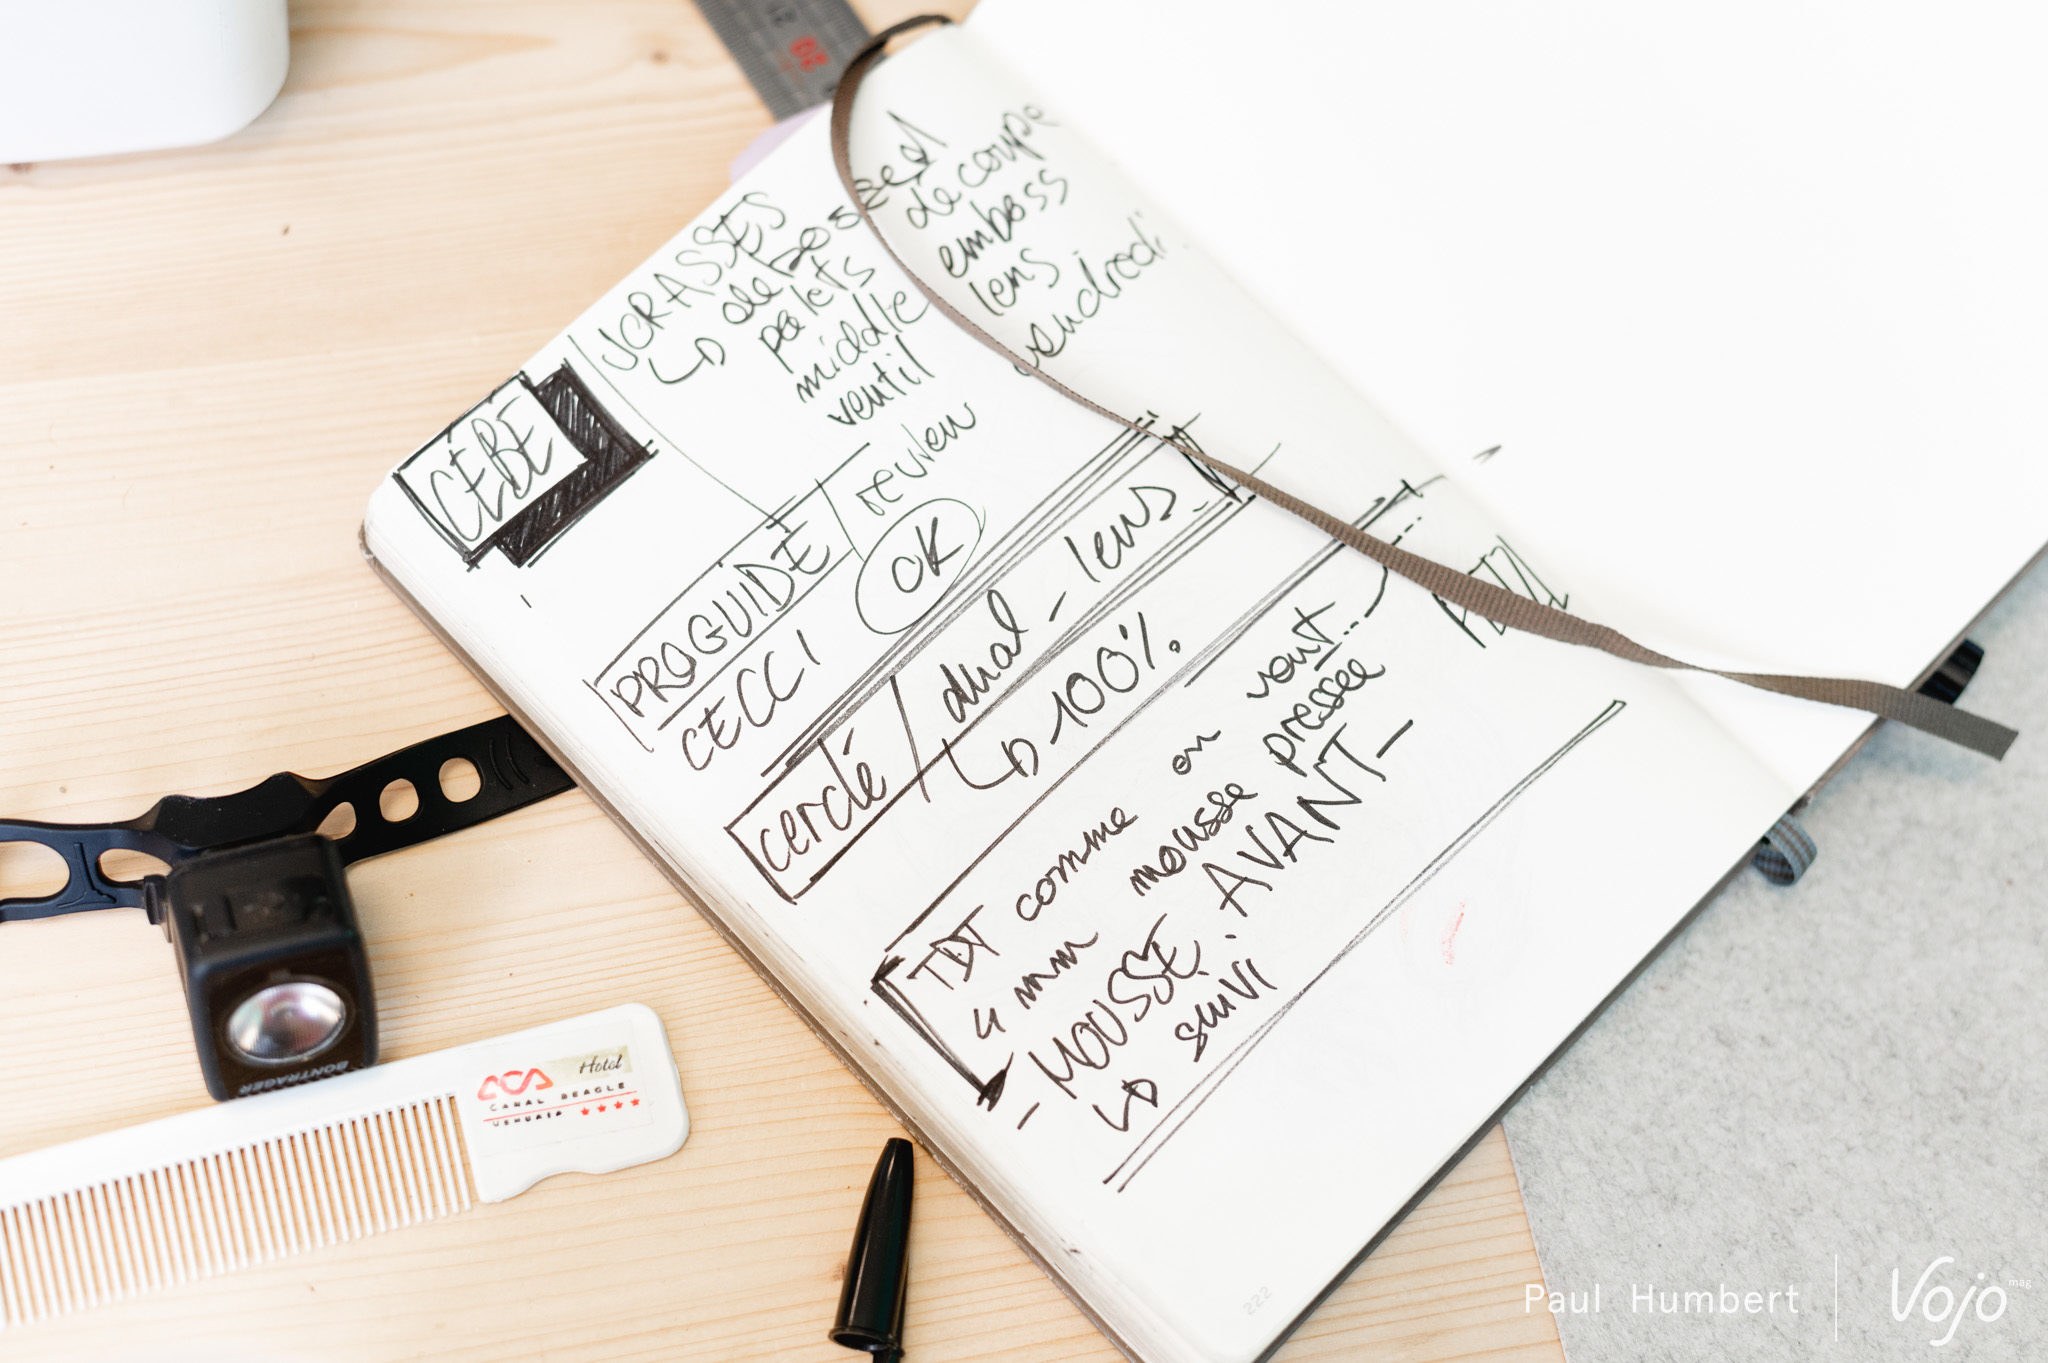 JORASSES
debossed
palets
middle
ventil
découpe
emboss
lens
vendredi
CÉBÉ
PROGUIDE / review
CECCI OK
cerclé / dual-lens
100%.
TDT comme on vout...
4 mm mousse pressée
- MOUSSE. AVANT-
suivi
222
BONTRAGER
ACA Hotel
CANAL BEAGLE
USHUAIA ★★★★
Paul Humbert
Vojo mag